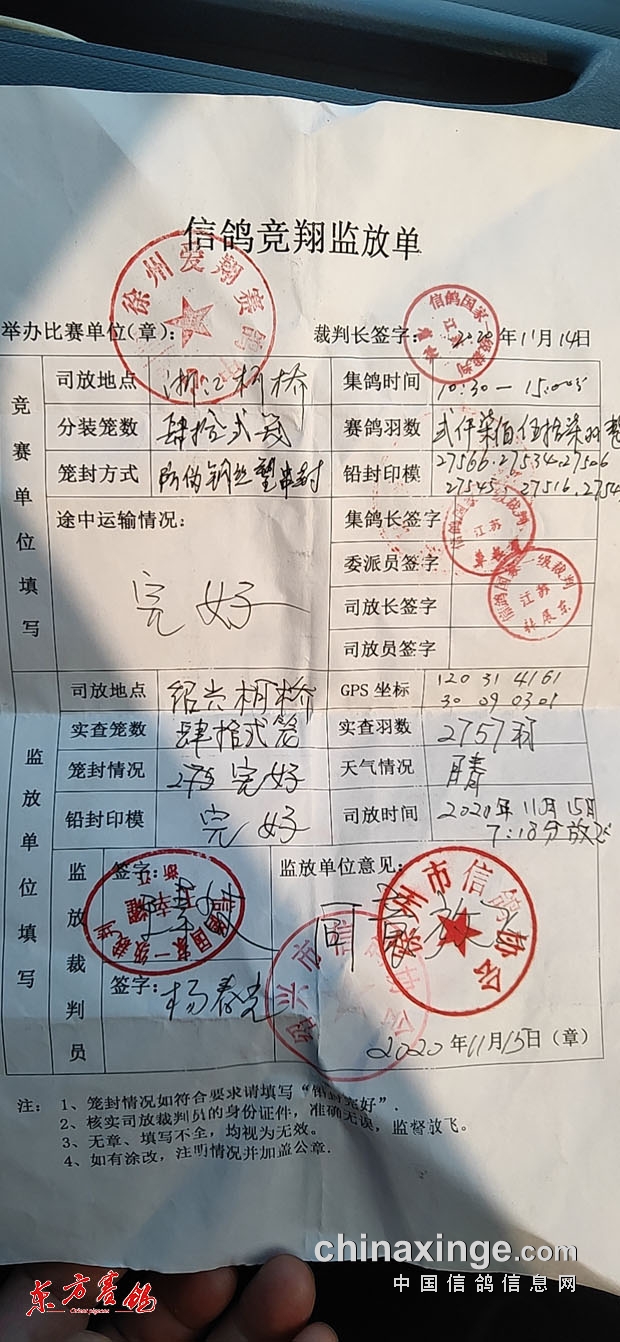 信鸽竞翔监放单
徐州爱翔赛鸽
举办比赛单位(章):
裁判长签字: 2020年11月14日
信鸽国家 级裁判
江苏
竞赛单位填写
司放地点 浙江柯桥
集鸽时间 10:30—15:00
分装笼数 肆拾弍笼
赛鸽羽数 弍仟柒佰伍拾柒羽整
笼封方式 防伪钢丝 串封
铅封印模 27566.27534.27506
27545. 27516.2754
途中运输情况:
完好
集鸽长签字
信鸽国 级裁判
江苏
委派员签字
信鸽国家一级裁判
江苏
司放长签字
司放员签字
监放单位填写
司放地点 绍兴柯桥
GPS 坐标 120 31 4161
30 09 0301
实查笼数 肆拾弍笼
实查羽数 2757羽
笼封情况 完好
天气情况 晴
铅封印模 完好
司放时间 2020年11月15日
7:18分放飞
监放裁判员
签字:
国家一级裁判
浙江
监放单位意见:
同意放飞
州市信鸽协会
绍兴市信鸽协会
签字: 杨春光
2020年11月15日(章)
注: 1、笼封情况如符合要求请填写“铅封完好”.
2、核实司放裁判员的身份证件,准确无误,监督放飞。
3、无章、填写不全,均视为无效。
4、如有涂改,注明情况并加盖公章.
chinaxinge.com
中国信鸽信息网
东方赛鸽
Orient pigeons